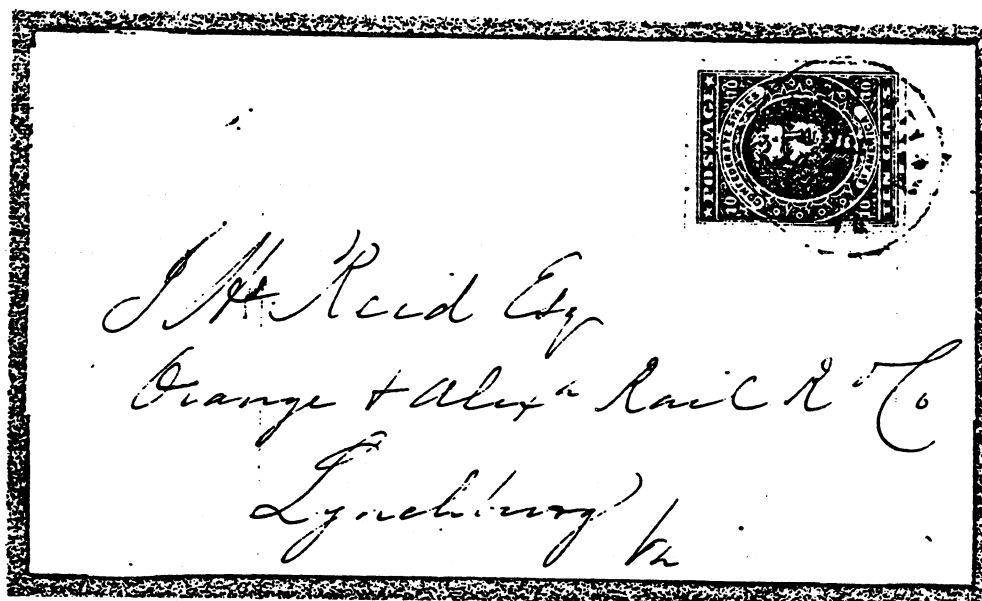 POSTAGE
CONFEDERATE STATES
TEN CENTS
10 10
10 10
J H Reid Esq
Orange + Alexa Rail Rd Co
Lynchburg
Va